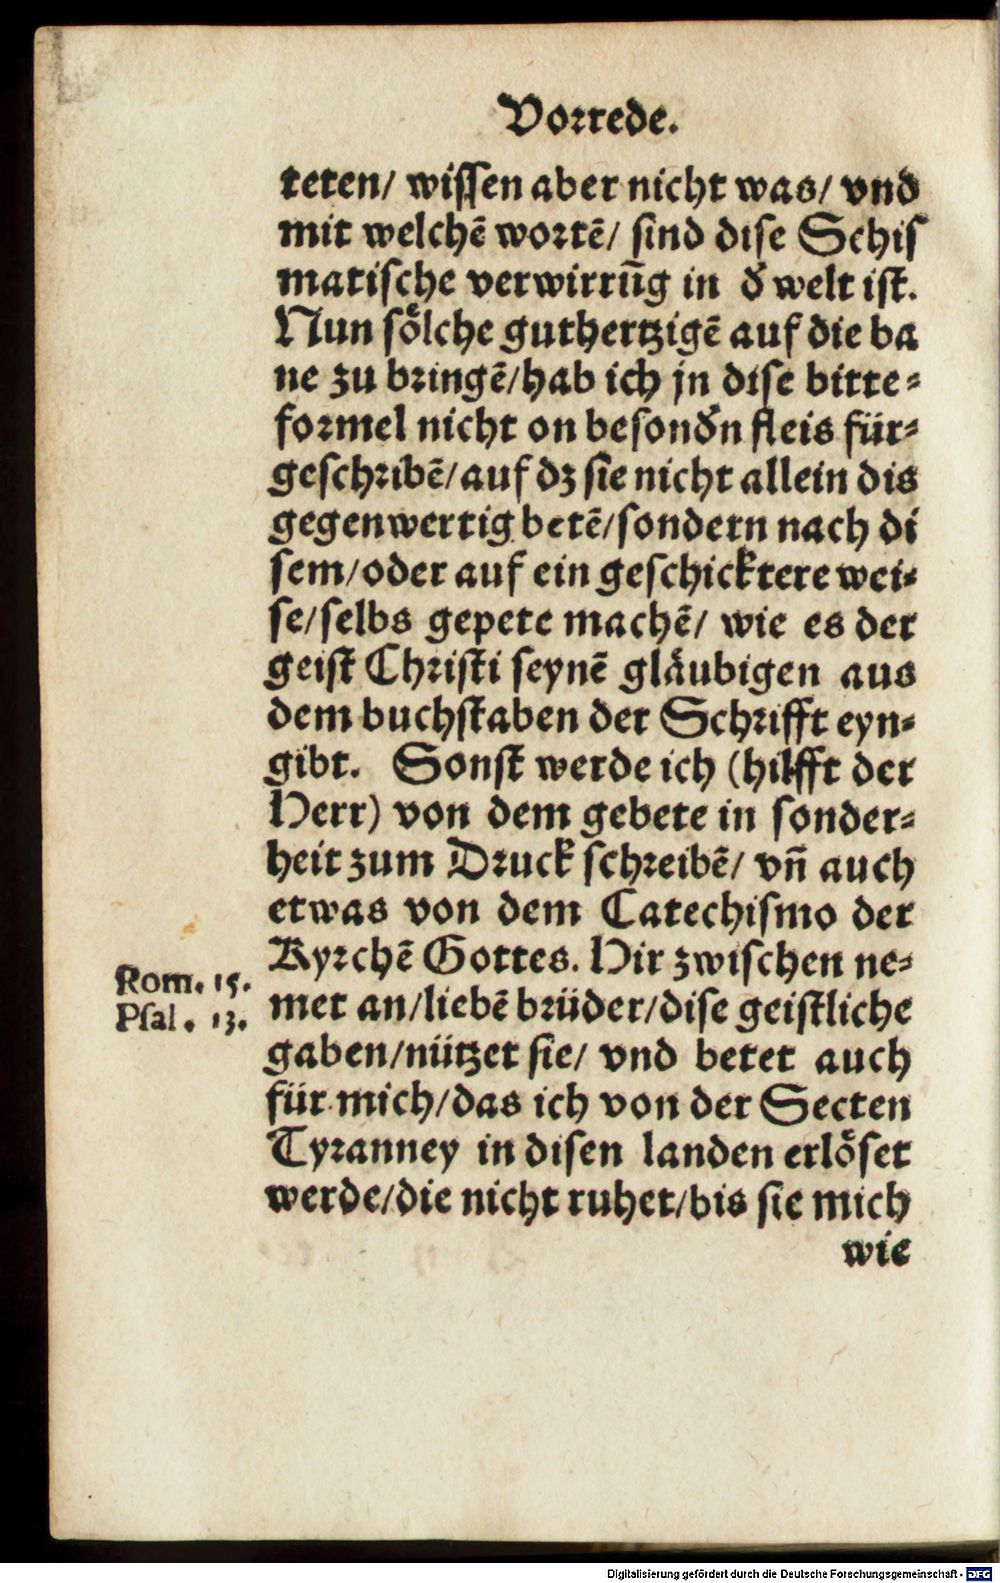 Vorrede.
teten/ wissen aber nicht was/ vnd
mit welchē wortē/ sind dise Schis
matische verwirrūg in d̕ welt ist.
Nun soͤlche guthertzigē auf die ba
ne zu bringē/hab ich jn dise bitte⸗
formel nicht on besond̕n fleis für⸗
geschribē/auf dz sie nicht allein dis
gegenwertig betē/sondern nach di
sem/oder auf ein geschicktere wei⸗
se/selbs gepete machē/ wie es der
geist Christi seynē glaͤubigen aus
dem buchstaben der Schrifft eyn⸗
gibt. Sonst werde ich (hilfft der
Herr) von dem gebete in sonder⸗
heit zum Druck schreibē/ vn̄ auch
etwas von dem Catechismo der
Kyrchē Gottes. Hir zwischen ne⸗
Rom. 15.
met an/liebē brüder/dise geistliche
Psal. 13.
gaben/nützet sie/ vnd betet auch
für mich/das ich von der Secten
Tyranney in disen landen erloͤset
werde/die nicht ruhet/bis sie mich
wie
Digitalisierung gefördert durch die Deutsche Forschungsgemeinschaft - DFG